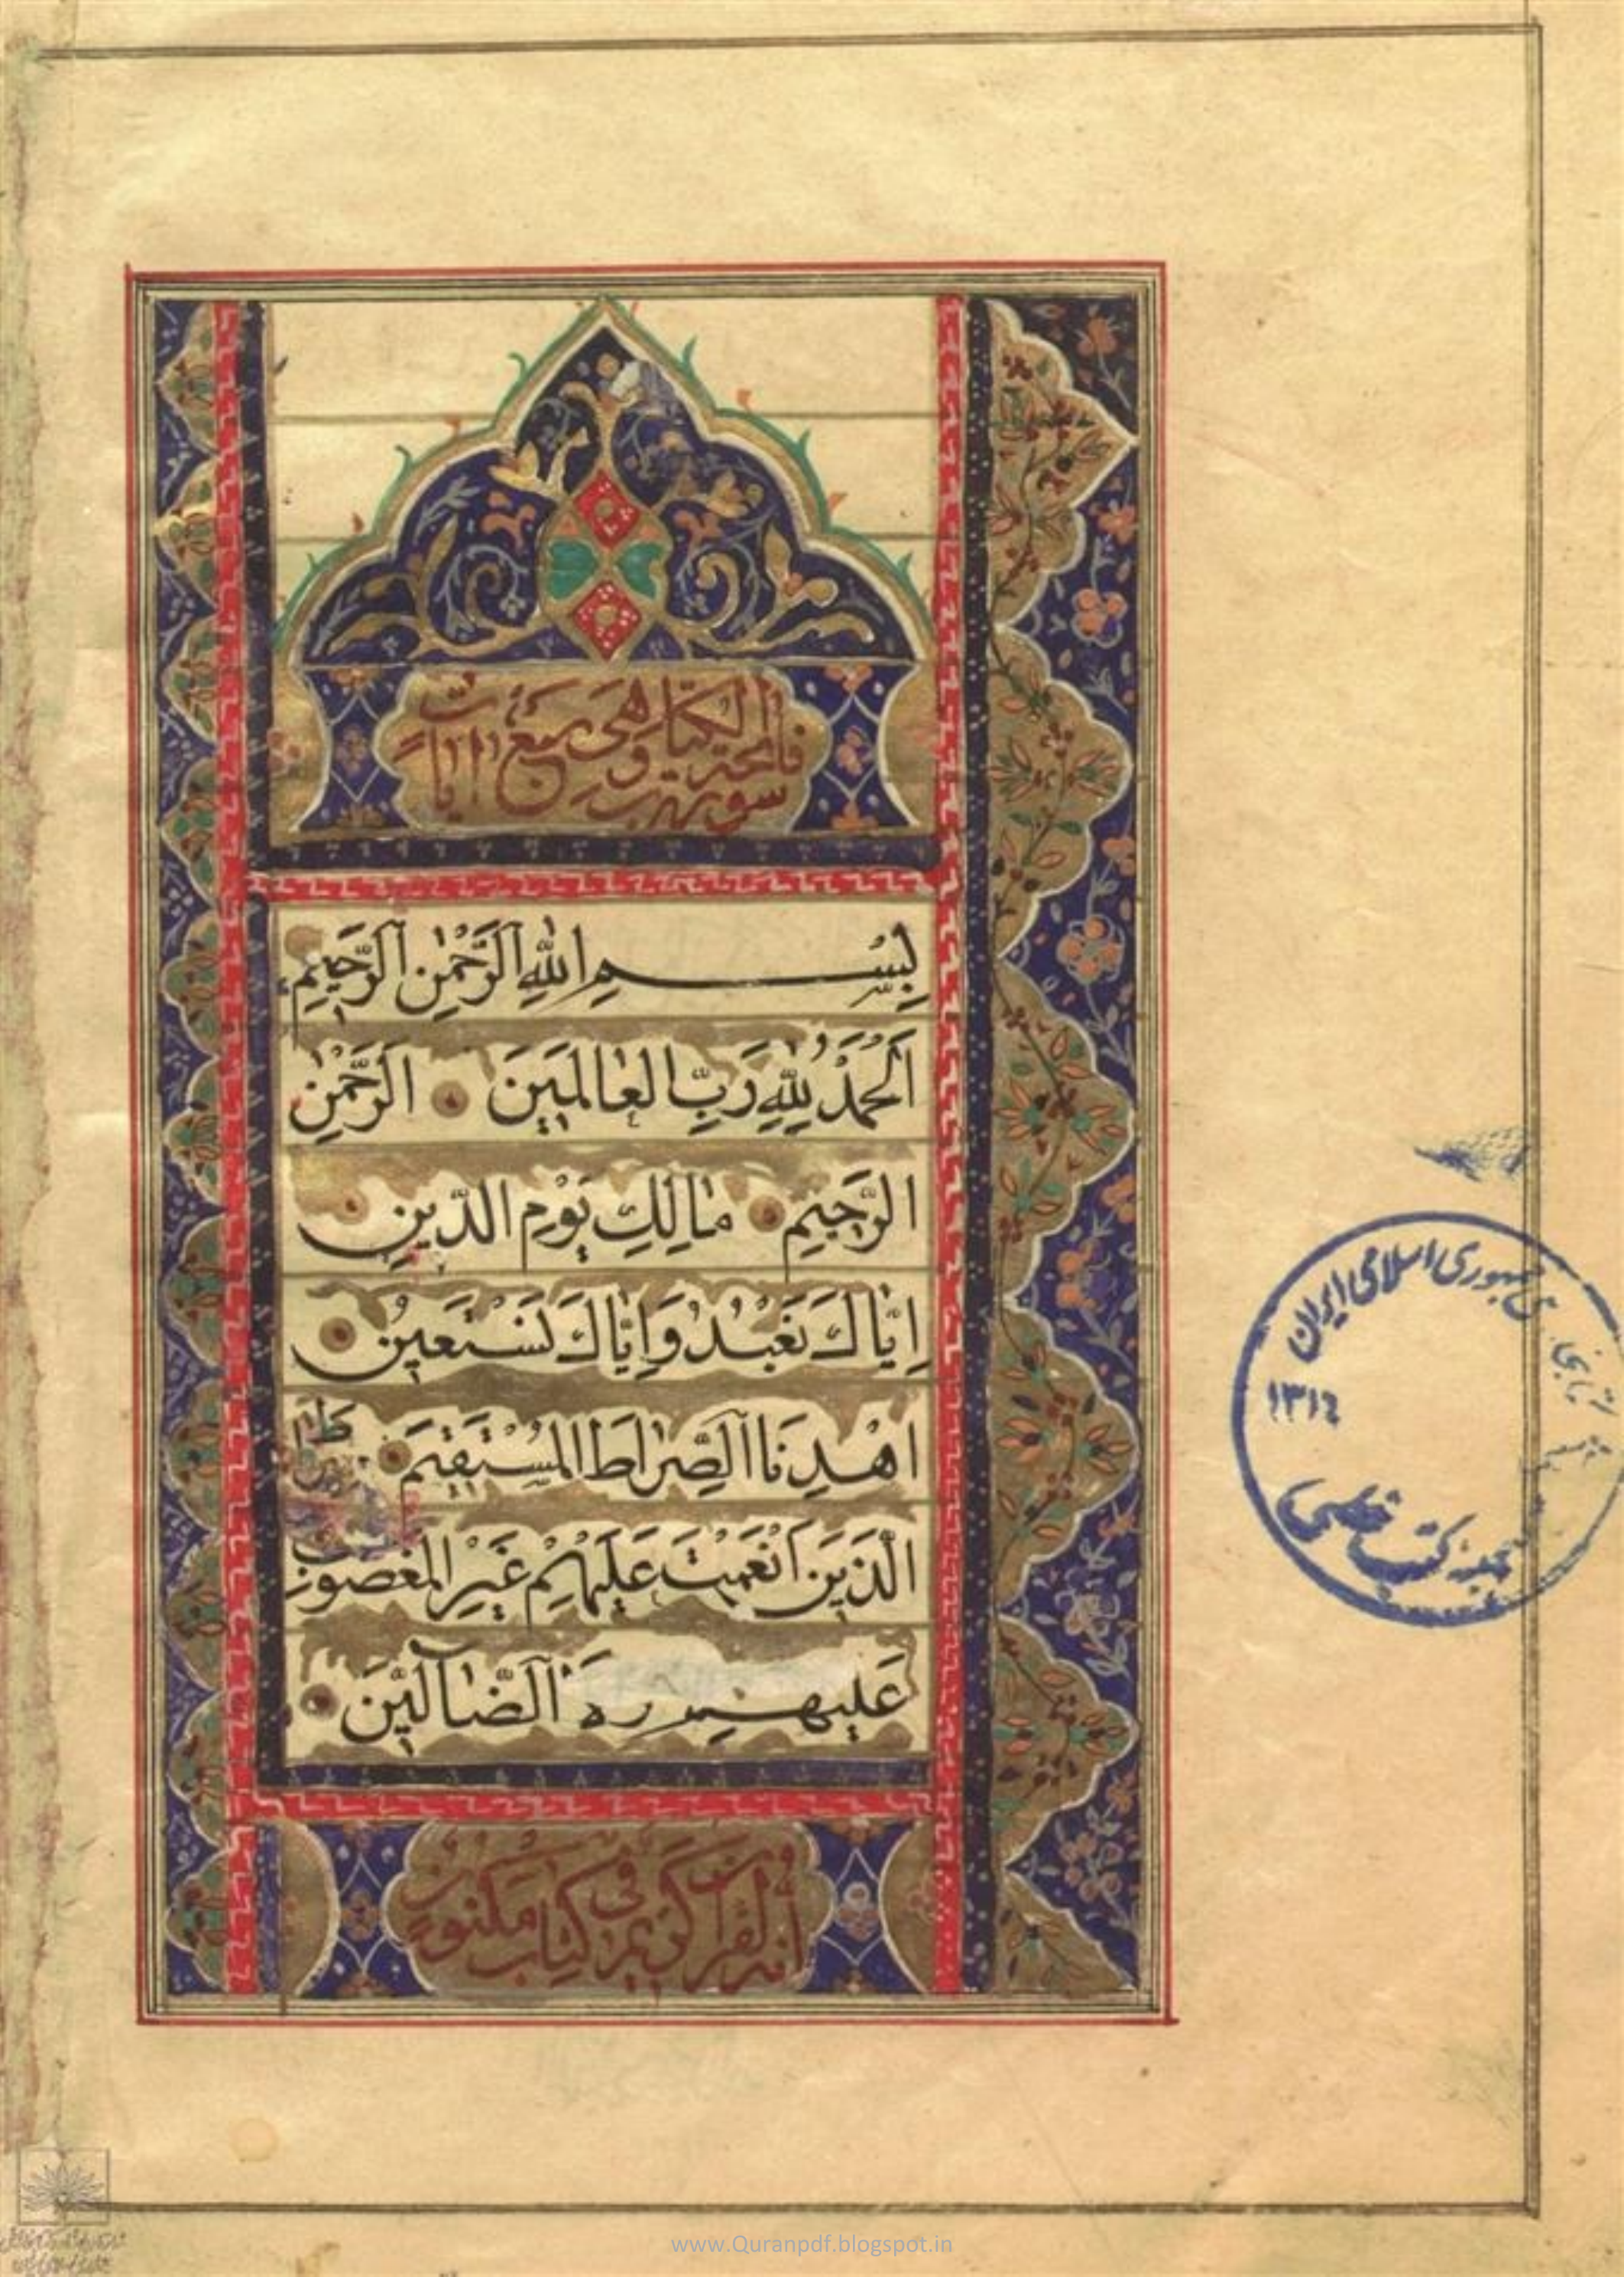 سورة فاتحة الكتاب وهى سبع ايات
بِسْمِ اللهِ الرَّحْمٰنِ الرَّحِيمِ
اَلْحَمْدُ لِلّٰهِ رَبِّ الْعالَمِينَ الرَّحْمٰنِ
الرَّحِيمِ مالِكِ يَوْمِ الدّينِ
اِيّاكَ نَعْبُدُ وَاِيّاكَ نَسْتَعينُ
اهْدِنَا الصِّراطَ الْمُسْتَقيمَ صِراطَ
الَّذينَ اَنْعَمْتَ عَلَيْهِمْ غَيْرِ الْمَغْضُوبِ
عَلَيهِم الضّآلّينَ
انه لقران كريم فى كتاب مكنون
جمهوری اسلامی ایران
۱۳۱۶
کتب خطی
www.Quranpdf.blogspot.in